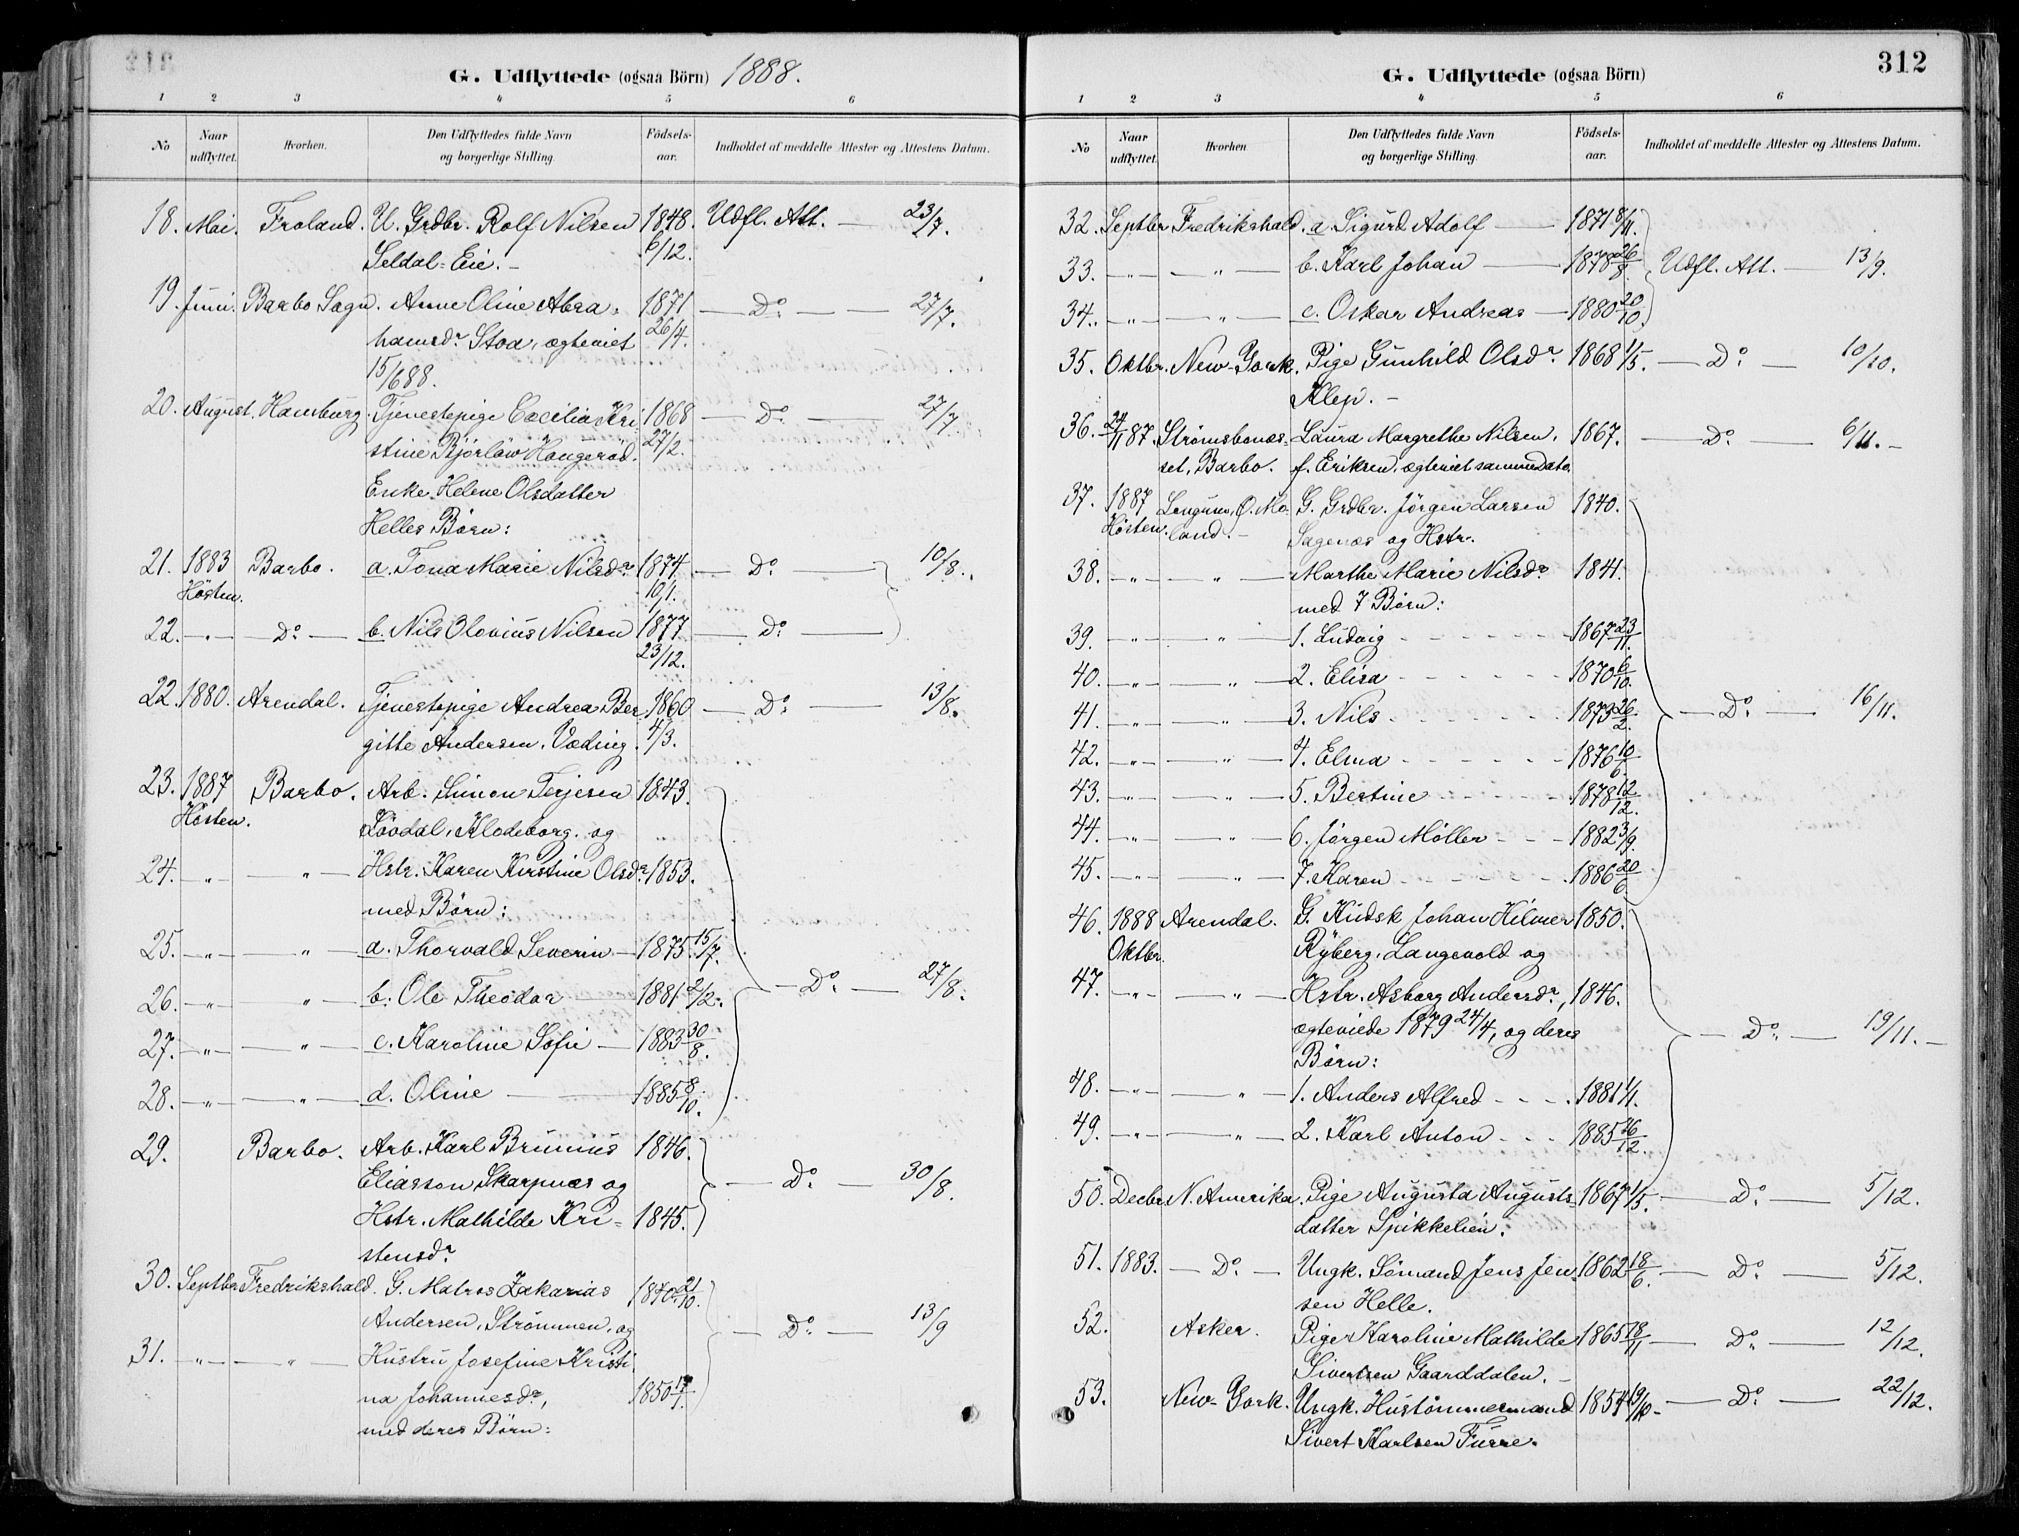 G. Udflyttede (ogsaa Börn) 1888.
1 2 3 4 5 6
No Naar udflyttet. Hvorhen. Den Udflyttedes fulde Navn og borgerlige Stilling. Födsels-aar. Indholdet af meddelte Attester og Attestens Datum.
18. Mai. Froland. U. Grdbr. Rolf Nilsen 1848. Udfl. Att. — 23/7.
Seldal-Eie. — 6/12.
19. Juni. Barbo Sogn. Anne Oline Abra- 1871 — Do. — 27/7.
hamsdr. Stoa, ægteviet 26/4.
15/6 88.
20. August. Hamburg. Tjenestepige Cæcilia Kri- 1868 — Do. — 27/7.
stine Bjørlow Haugerød. 27/2.
Enke Helene Olsdatter
Helles Børn:
21. 1883 Barbo. a. Tona Marie Nilsdr. 1874. — Do. — 10/8.
Høsten. 10/1.
22. — " — — Do. — b. Nils Olovius Nilsen 1877. — Do. —
23/12.
22. 1880. Arendal. Tjenestepige Andrea Ber- 1860 — Do. — 13/8.
gitte Andersen. Væding. 4/3.
23. 1887 Barbo. Arb. Simon Terjesen 1843.
Høsten. Løvdal, Klodeborg. og
24. — " — " — Hstr. Karen Kirstine Olsdr. 1853.
med Børn:
25. — " — " — a. Thorvald Severin — 1875. 15/7.
26. — " — " — b. Ole Theodor — 1881. 2/2. — Do. — 27/8.
27. — " — " — c. Karoline Sofie — 1883 30/8.
28. — " — " — d. Oline — 1885 8/10.
29. Barbo. Arb. Karl Brunius 1846.
Eliasson Skarpnæs og — Do. — 30/8.
Hstr. Mathilde Kri- 1845.
stensdr.
30. Septbr. Fredrikshald. G. Matros Zakarias 1840. 21/10.
Andersen, Strømmen, og — Do. — 13/9
31. — " — " — Hustru Josefine Kristi
na Johannesdr., 1850
med deres Børn:
312
G. Udflyttede (ogsaa Börn)
1 2 3 4 5 6
No Naar udflyttet. Hvorhen. Den Udflyttedes fulde Navn og borgerlige Stilling. Födsels-aar. Indholdet af meddelte Attester og Attestens Datum.
32. Septbr Fredrikshald. a. Sigurd Adolf — 1871 8/11.
33. — " — " — b. Karl Johan — 1878 26/8 Udfl. Att. — 13/9.
34. — " — " — c. Oskar Andreas — 1880 20/10.
35. Oktbr. New-York. Pige Gunhild Olsdr. 1868 1/5. — Do. — 10/10.
Klep. —
36. 24/11 87. Strømsbonæs- Laura Margrethe Nilsen, 1867. — Do. — 6/11. —
set, Barbo. f. Eriksen, ægteviet samme dato.
37. 1887 Longum, Ø. Mo- G. Grdbr. Jørgen Larsen 1840.
Høsten. land. — Sagenæs og Hstr.
38. — " — " — Marthe Marie Nilsdr. 1841.
med 7 Børn:
39. — " — " — 1. Ludvig - - - 1867 23/11.
40. — " — " — 2. Elisa - - - 1870 6/10.
41. — " — " — 3. Nils - - - 1873 26/2. — Do. — 16/11.
42. — " — " — 4. Elma - - - 1876 10/6.
43. — " — " — 5. Bertine - - - 1878 12/12.
44. — " — " — 6. Jørgen Møller - - - 1882 3/9.
45. — " — " — 7. Karen - - - 1886 20/6
46. 1888 Arendal. G. Kudsk Johan Hilmer 1850.
Oktbr. Ryberg, Langevold og
47. — " — " — Hstr. Asborg Andersdr., 1846.
ægteviede 1879 24/4, og deres — Do. — 19/11. —
Børn:
48. — " — " — 1. Anders Alfred - - - 1881 1/1.
49. — " — " — 2. Karl Anton - - - 1885 26/12.
50. Decbr. N. Amerika. Pige Augusta Augusts- 1867 1/5. — Do. — 5/12.
datter Spikkelien.
51. 1883. — Do. — Ungk. Sömand Jens Jen- 1862 18/6. — Do. — 5/12.
sen Helle.
52. Asker. Pige Karoline Mathilde 1865 18/11 — Do. — 12/12.
Sivertsen Gaarddalen. —
53. New-York. Ungk. Hustömmermand 1854 19/10 — Do. — 22/12.
Sivert Karlsen Furre.